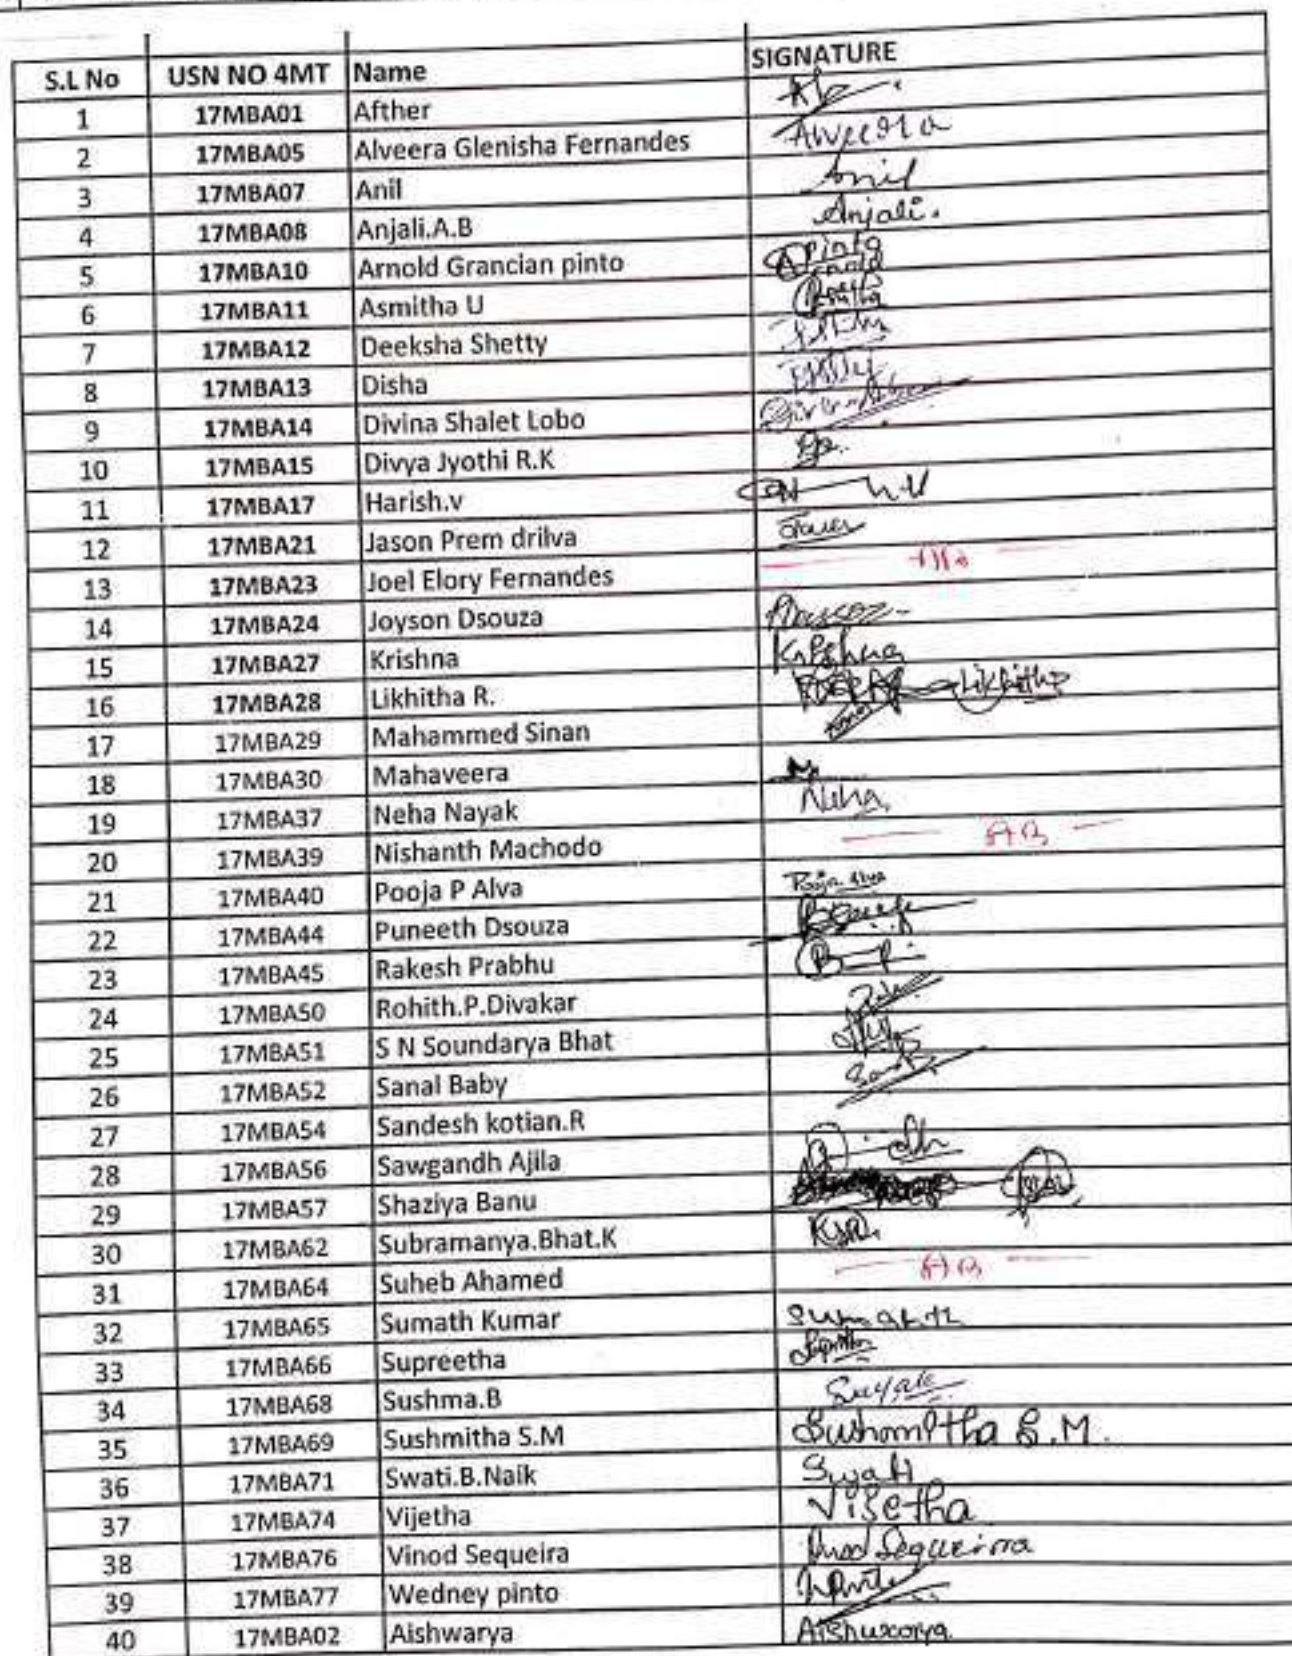 S.L No USN NO 4MT Name SIGNATURE
1 17MBA01 Afther
2 17MBA05 Alveera Glenisha Fernandes Alveera
3 17MBA07 Anil Anil
4 17MBA08 Anjali.A.B Anjali.
5 17MBA10 Arnold Grancian pinto Pinto Arnold
6 17MBA11 Asmitha U
7 17MBA12 Deeksha Shetty
8 17MBA13 Disha
9 17MBA14 Divina Shalet Lobo
10 17MBA15 Divya Jyothi R.K
11 17MBA17 Harish.v
12 17MBA21 Jason Prem drilva
13 17MBA23 Joel Elory Fernandes
14 17MBA24 Joyson Dsouza
15 17MBA27 Krishna Krishna
16 17MBA28 Likhitha R. Likhitha
17 17MBA29 Mahammed Sinan
18 17MBA30 Mahaveera
19 17MBA37 Neha Nayak Neha
20 17MBA39 Nishanth Machodo AB
21 17MBA40 Pooja P Alva Pooja Alva
22 17MBA44 Puneeth Dsouza
23 17MBA45 Rakesh Prabhu
24 17MBA50 Rohith.P.Divakar
25 17MBA51 S N Soundarya Bhat
26 17MBA52 Sanal Baby
27 17MBA54 Sandesh kotian.R
28 17MBA56 Sawgandh Ajila
29 17MBA57 Shaziya Banu
30 17MBA62 Subramanya.Bhat.K
31 17MBA64 Suheb Ahamed AB
32 17MBA65 Sumath Kumar
33 17MBA66 Supreetha
34 17MBA68 Sushma.B
35 17MBA69 Sushmitha S.M Sushmitha S.M.
36 17MBA71 Swati.B.Naik
37 17MBA74 Vijetha Vijetha
38 17MBA76 Vinod Sequeira Sequeira
39 17MBA77 Wedney pinto
40 17MBA02 Aishwarya Aishwarya